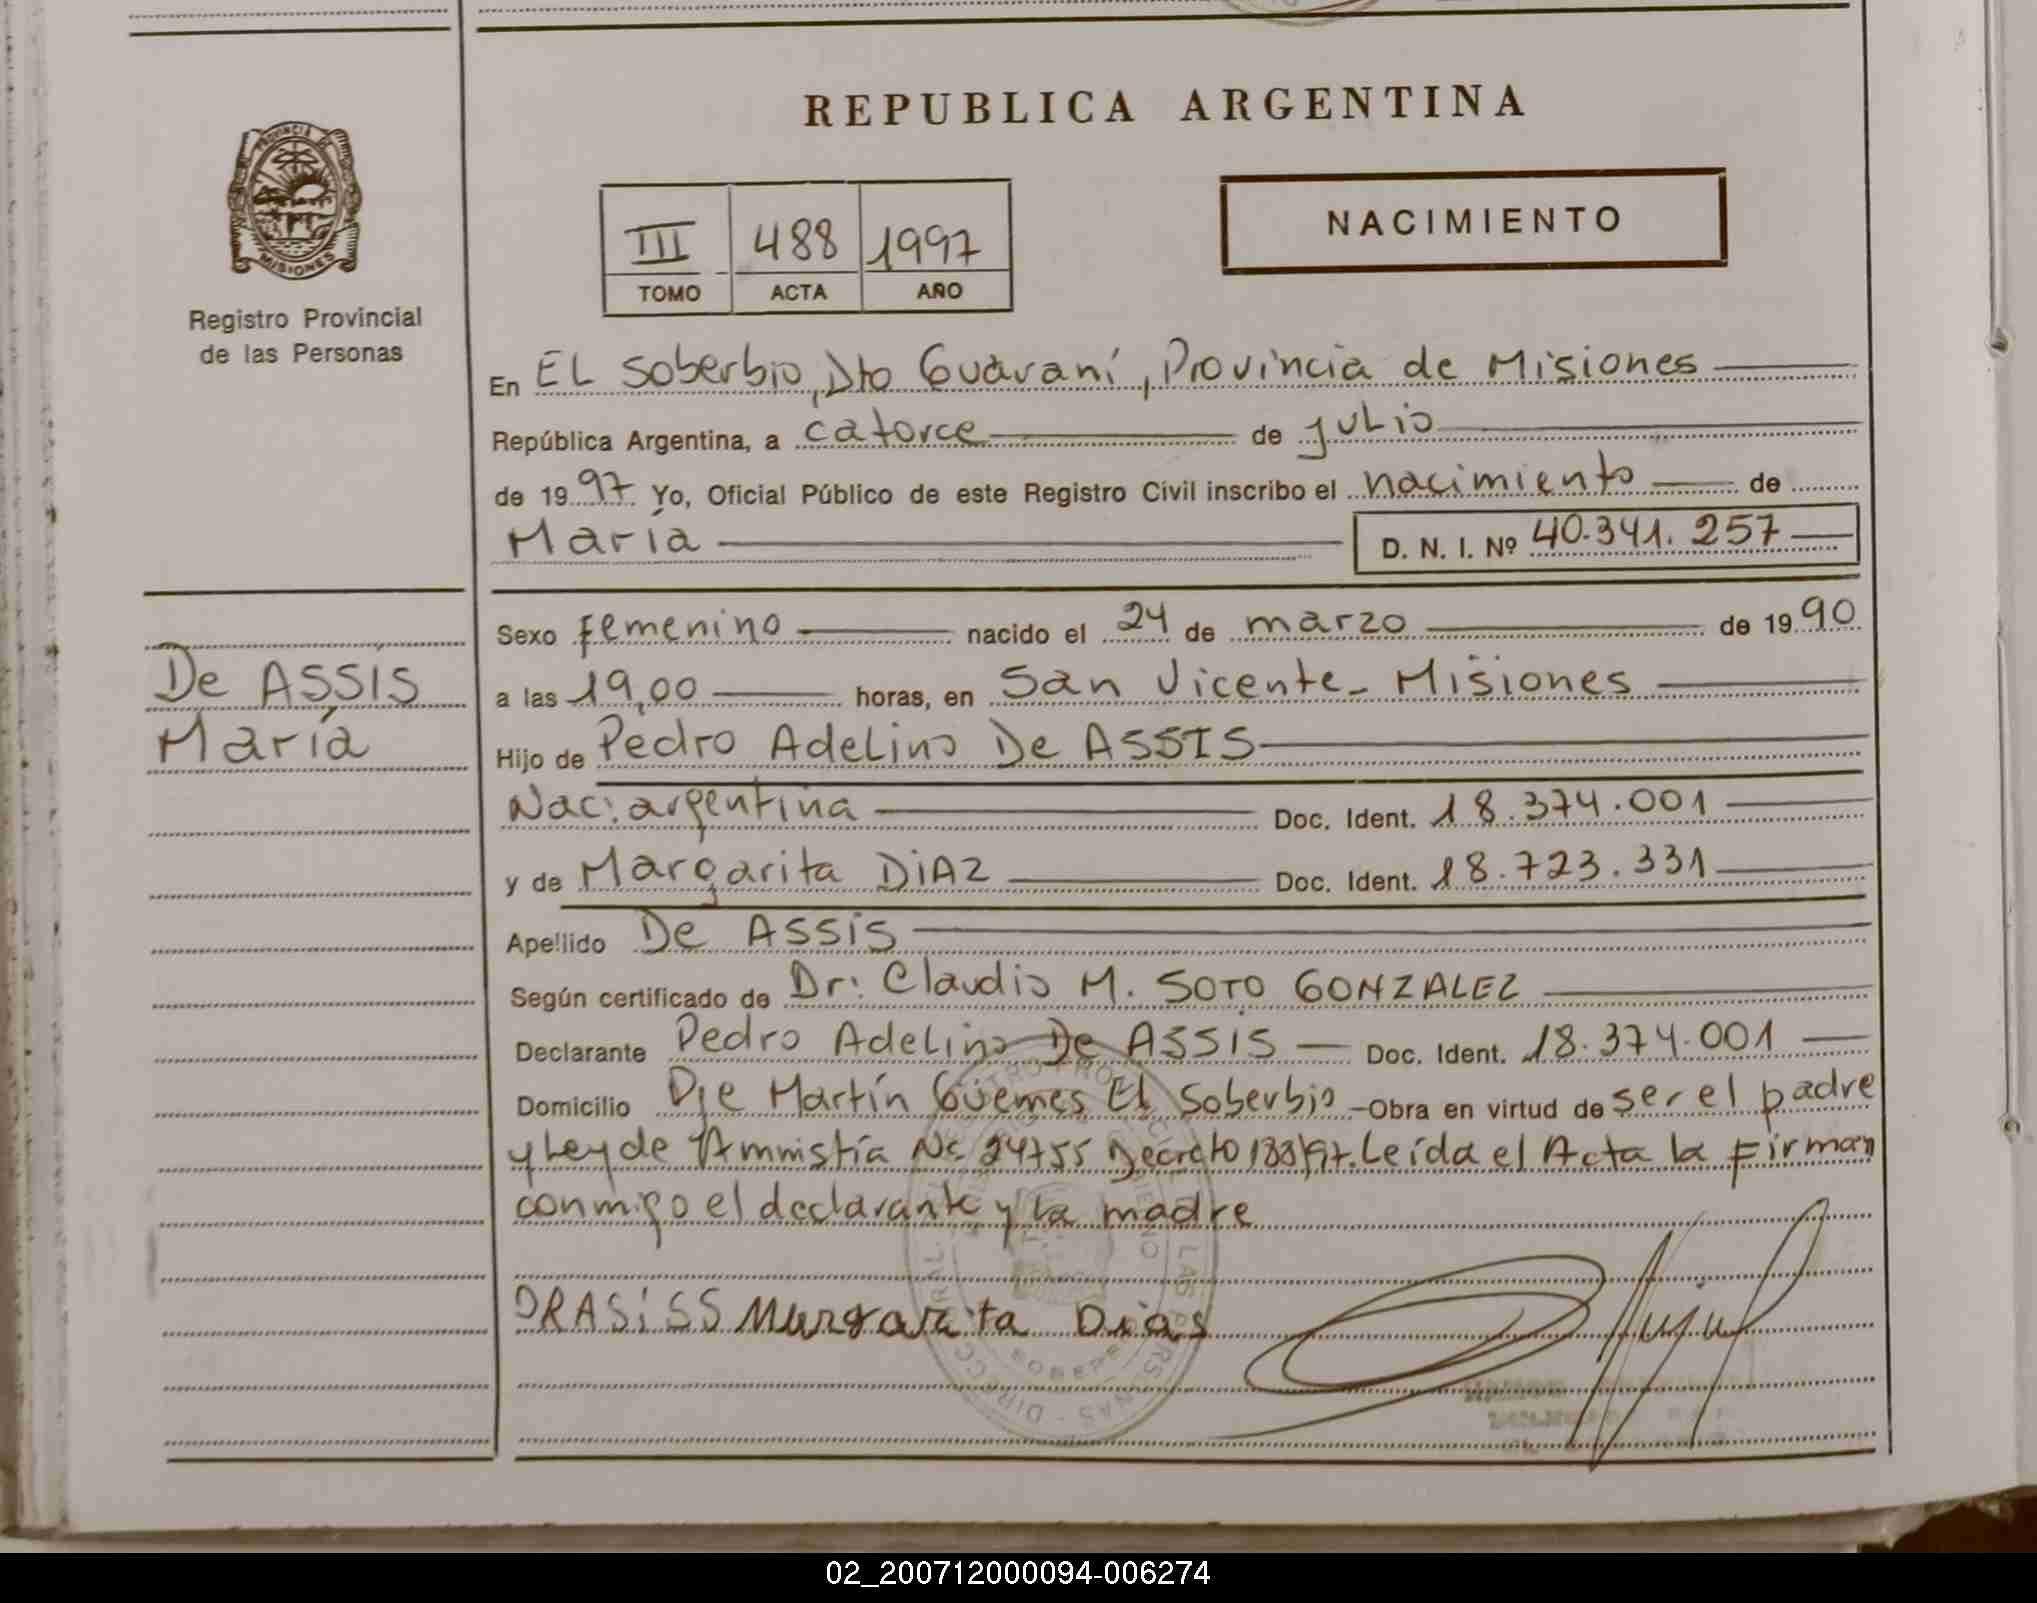 REPUBLICA ARGENTINA
PROVINCIA DE
MISIONES
Registro Provincial
de las Personas
III 488 1997
TOMO ACTA AÑO
NACIMIENTO
En EL Soberbio, Dto Guaraní, Provincia de Misiones
República Argentina, a catorce de julio
de 1997 Yo, Oficial Público de este Registro Civil inscribo el nacimiento de
María D. N. I. Nº 40.341.257
De ASSIS
María
Sexo femenino nacido el 24 de marzo de 1990
a las 19,00 horas, en San Vicente - Misiones
Hijo de Pedro Adelino De ASSIS
Nac: argentina Doc. Ident. 18.374.001
y de Margarita DiAZ Doc. Ident. 18.723.331
Apellido De ASSiS
Según certificado de Dr: Claudio M. SOTO GONZALEZ
Declarante Pedro Adelino De ASSIS Doc. Ident. 18.374.001
Domicilio Dje Martín Güemes El Soberbio - Obra en virtud de ser el padre
y Ley de Amnistía Nº 24755 Decreto 188/97. Leída el Acta la Firman
conmigo el declarante y la madre
DRASiSS Margarita Dias
02_200712000094-006274